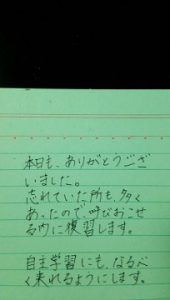 本日も、ありがとうござ
いました。
忘れていた所も、多く
あったので、呼びおこせ
る内に復習します。
自主学習にも、なるべ
く来れるようにします。